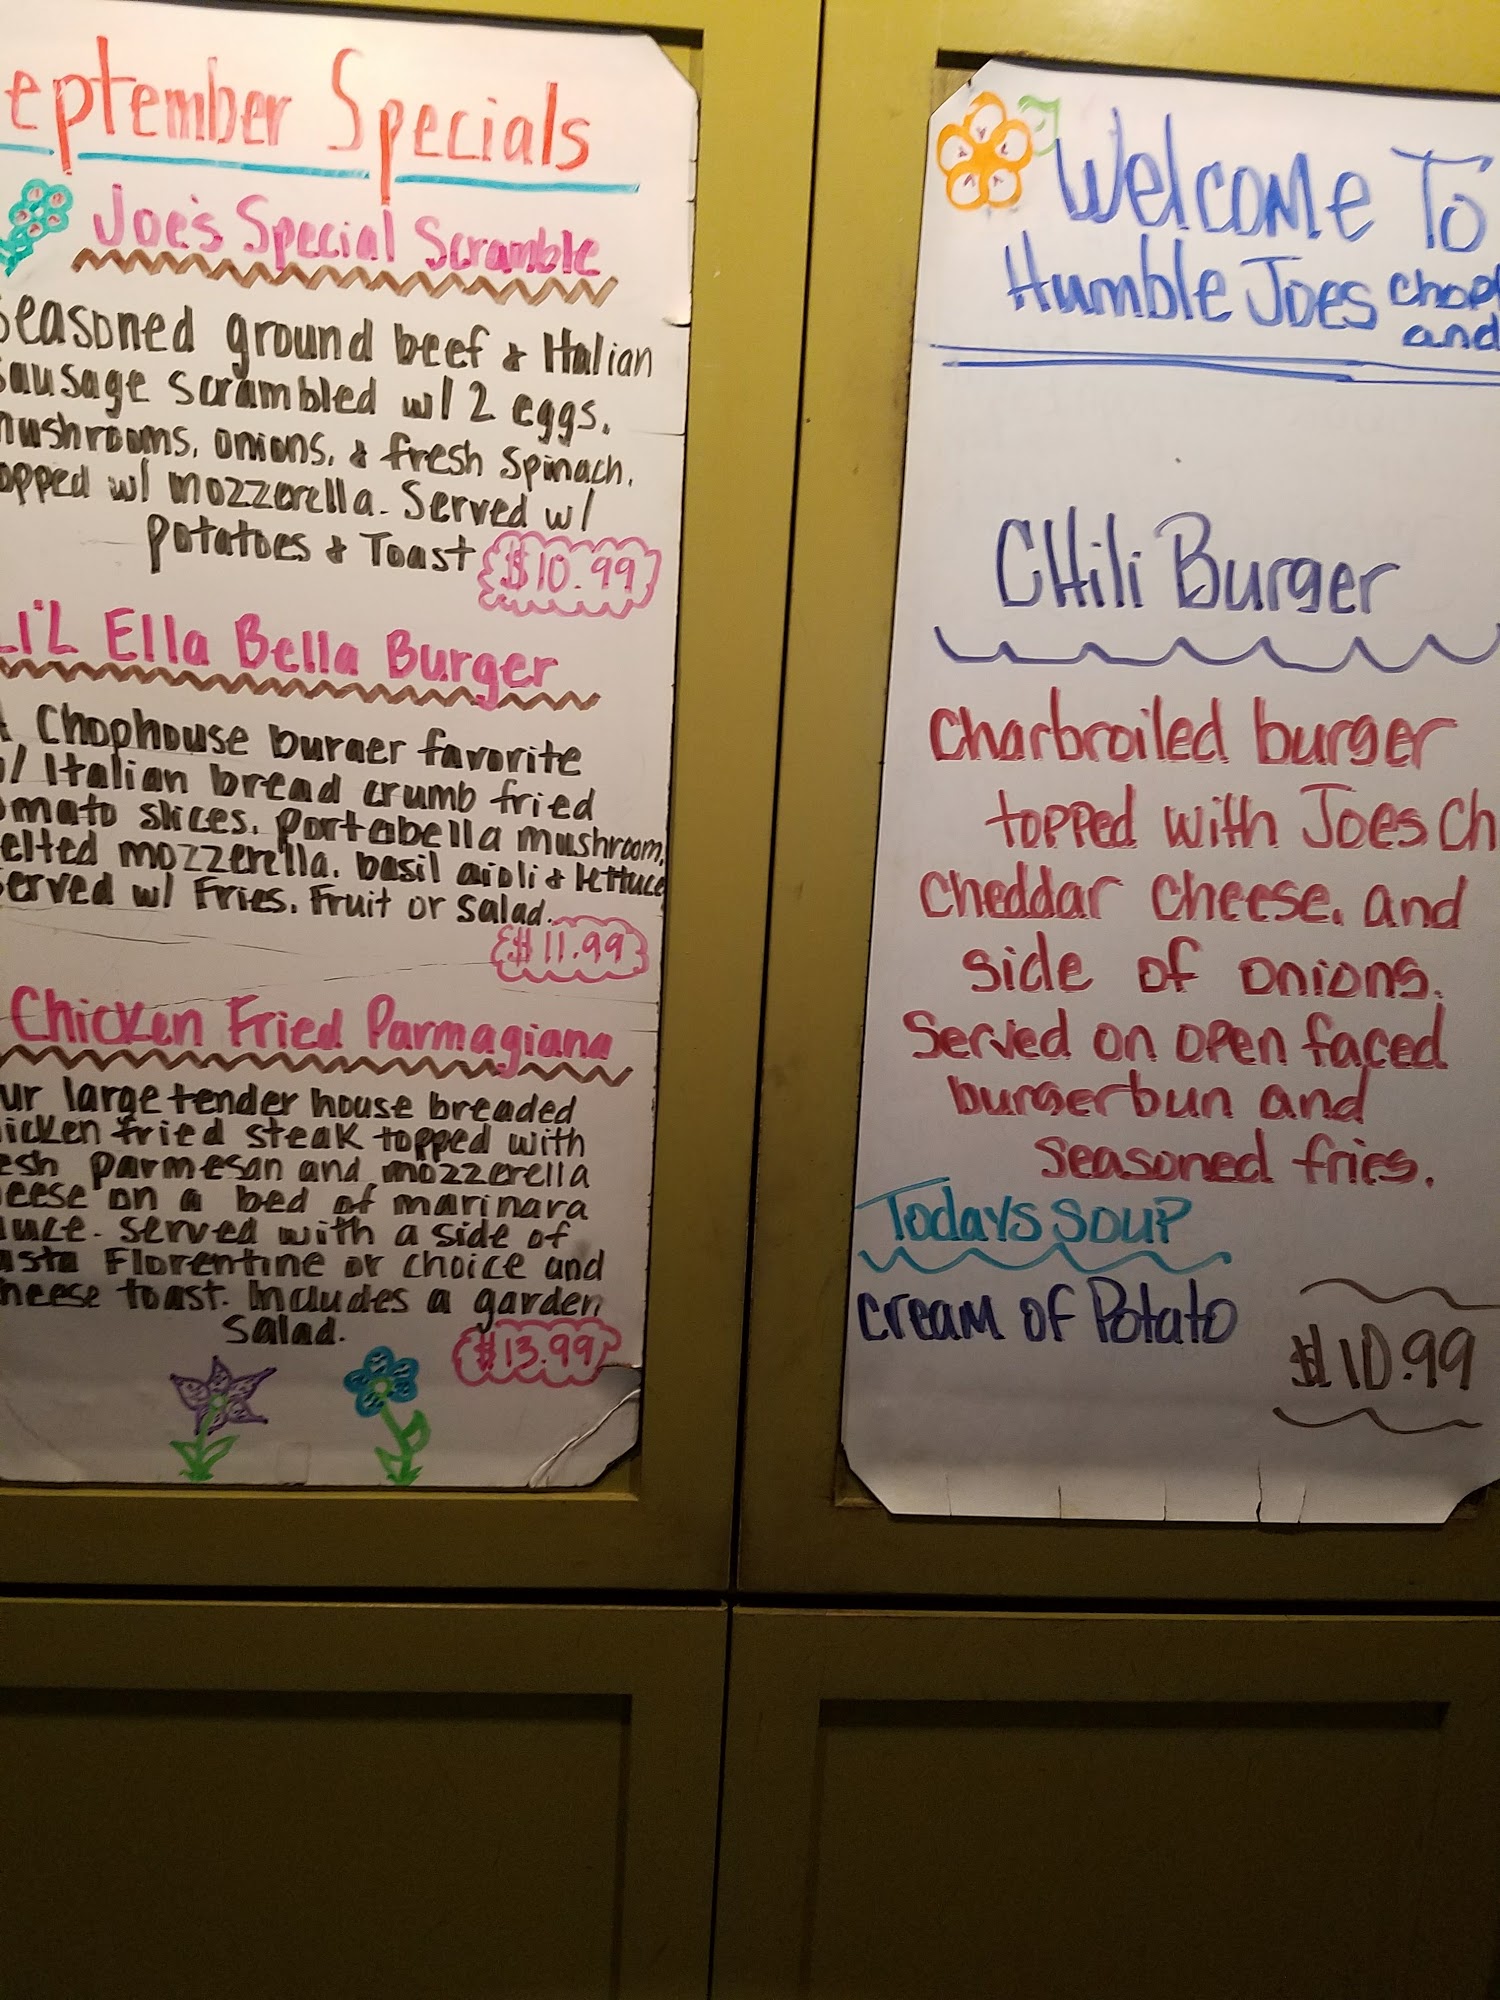 eptember Specials
Joe's Special Scramble
Seasoned ground beef & Italian
sausage scrambled w/ 2 eggs,
mushrooms, onions, & fresh spinach.
opped w/ mozzerella. Served w/
potatoes & Toast $10.99
Li'L Ella Bella Burger
A Chophouse burger favorite
w/ Italian bread crumb fried
omato slices, portabella mushroom,
elted mozzerella, basil aioli & lettuce
Served w/ Fries, Fruit or salad.
$11.99
Chicken Fried Parmagiana
ur large tender house breaded
icken fried steak topped with
esh parmesan and mozzerella
eese on a bed of marinara
auce. served with a side of
asta Florentine or choice and
heese toast. Includes a garden
salad.
$13.99
Welcome To
Humble Joes Chop
and
CHili Burger
Charbroiled burger
topped with Joes Ch
cheddar cheese, and
side of onions.
Served on open faced
burgerbun and
seasoned fries.
Todays Soup
cream of Potato
$10.99